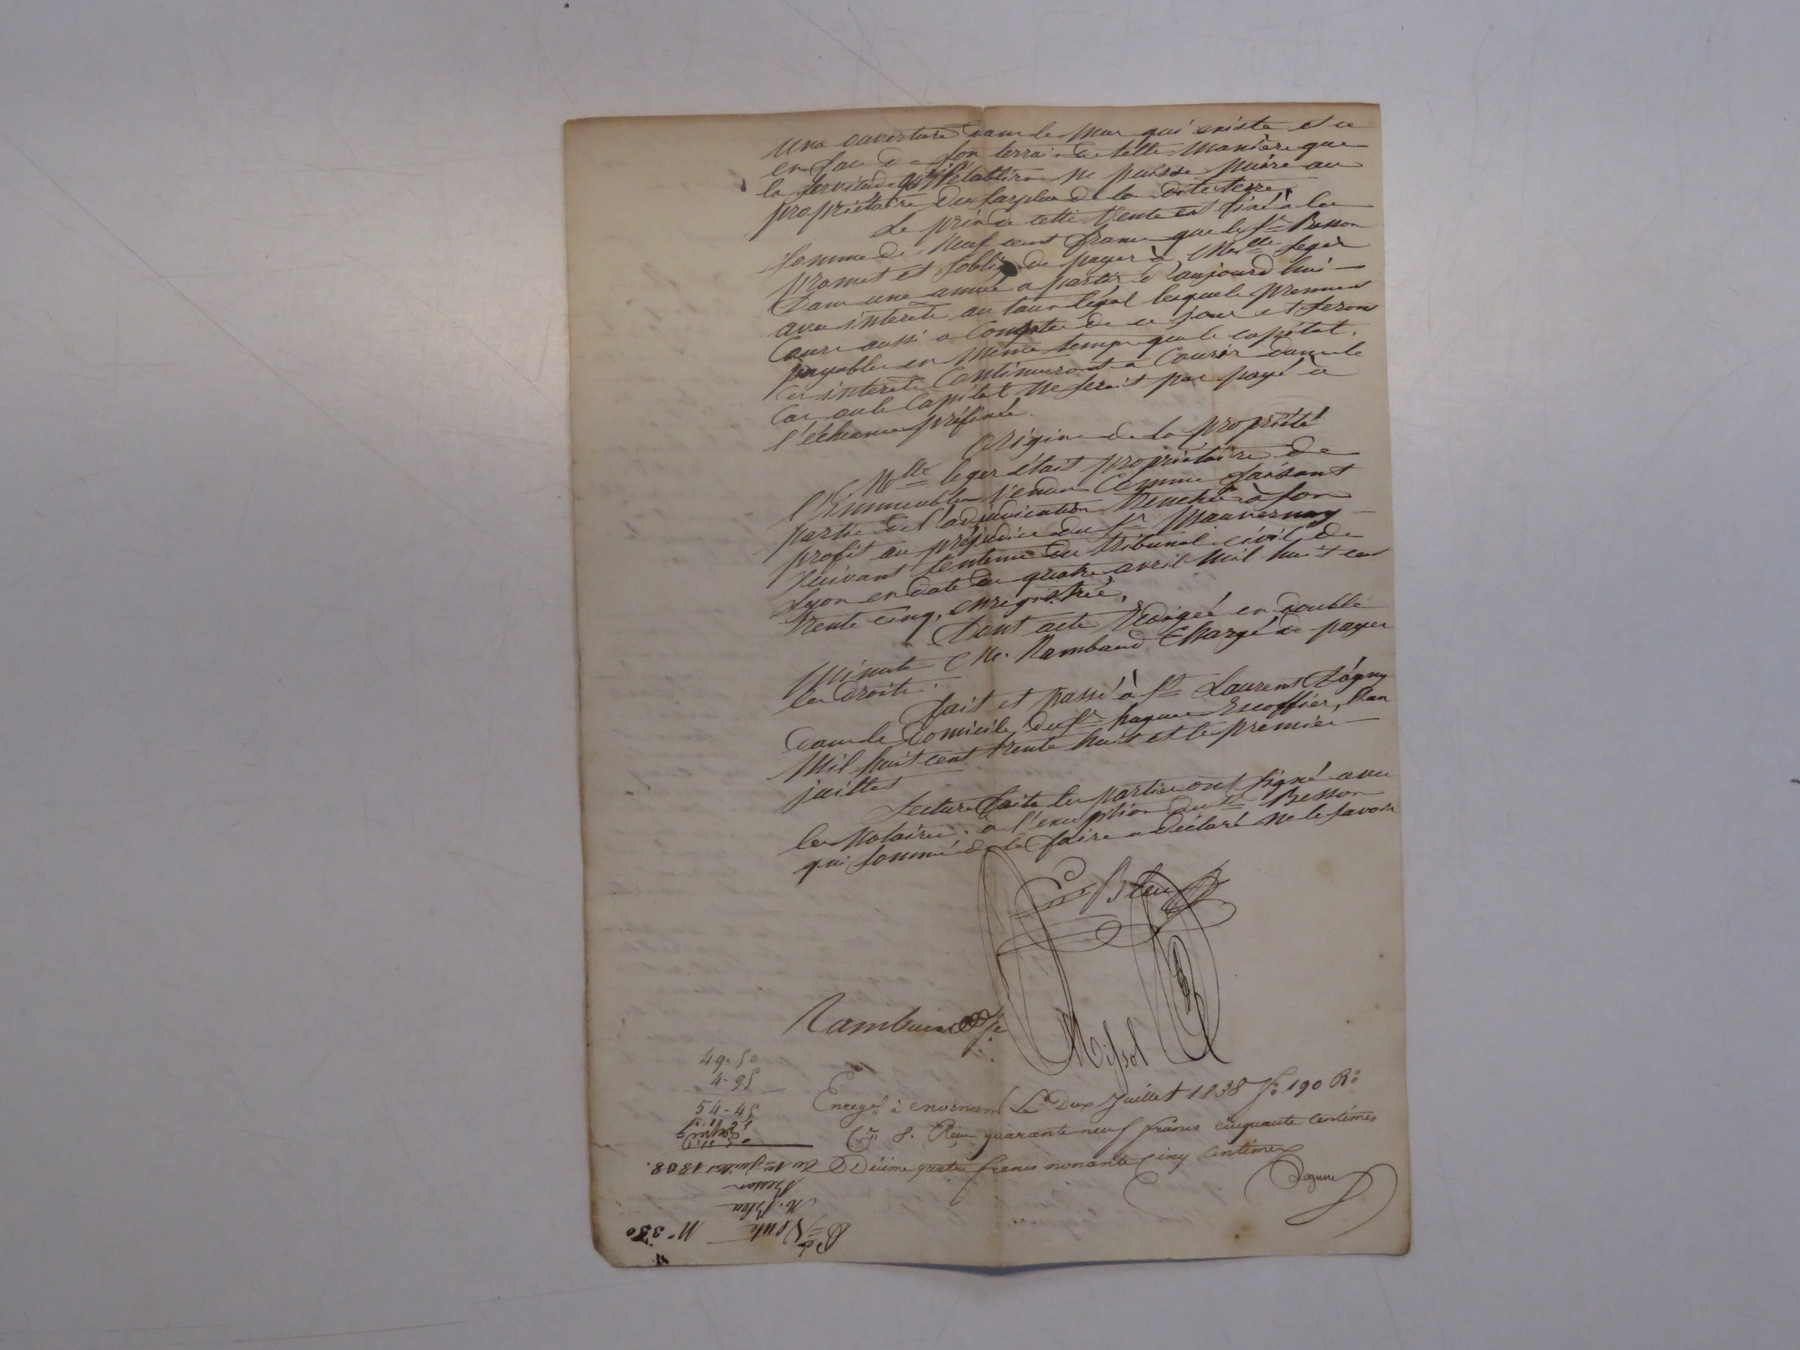 une ouverture dans le mur qui existe et ce
en face de son terrain de telle manière que
la servitude qu'il établira ne puisse nuire au
propriétaire du surplus de la dite terre.
Le prix de cette vente est fixé à la
somme de Neuf cent francs que le Sr Besson
promet et s'oblige de payer à Melle Leger
Dans une année à partir d'aujourd'hui —
avec intérêts au taux légal lesquels prennent
Cours aussi à Compter de ce jour et seront
payables en même temps que le capital.
Ces intérêts Continueront à Courir dans le
Cas où le Capital ne serait pas payé à
l'échéance préfixée.
Origine de la propriété
Melle leger était propriétaire de
l'Immeuble vendu Comme faisant
partie de l'adjudication tranchée à son
profit au préjudice du Sr Mauvernay —
suivant sentence du tribunal civil de
Lyon en date du quatre avril Mil huit cent
trente cinq, enregistrée,
Dont acte rédigé en double
Minute Me. Rambaud Chargé de payer
les droits.
fait et passé à St Laurent d'agny
dans le domicile du Sr Escoffier, l'an
Mil huit cent trente huit et le premier —
juillet
Lecture faite les parties ont signé avec
les Notaires, à l'exception du Sr Besson
qui sommé de le faire a déclaré ne le savoir
Bleu
Rambaud
Missol
49.50
4.95
54-45
Enregé à mornant Le Deux Juillet 1838 fo 190 Ro
Ce 8. Reçu quarante neuf francs cinquante centimes
Décime quatre francs nonante Cinq Centimes
Du 1er Juillet 1838.
Besson
M. Bleu
Vente
No 350